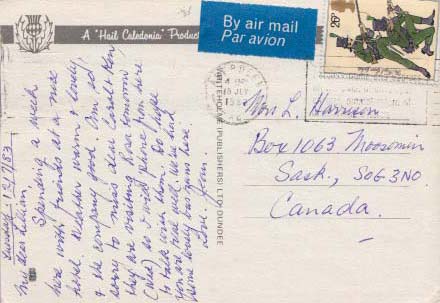 A "Hail Caledonia" Product
By air mail
Par avion
28p
WHITEHOLME (PUBLISHERS) LTD., DUNDEE
Tuesday 12/7/83
My dear Lilian,
Spending a week
here with friends at a nice
hotel. Weather warm & lovely,
& the company good. Am so
sorry to miss dear Carol & Ken,
they are visiting Rose tomorrow
(Wed) so I will phone from here
to talk with them. Do hope
you are real well. We've had
some lovely bus runs here
Love.
Mrs L. Harrison
Box 1063 Moosomin
Sask., SOG 3NO.
Canada.